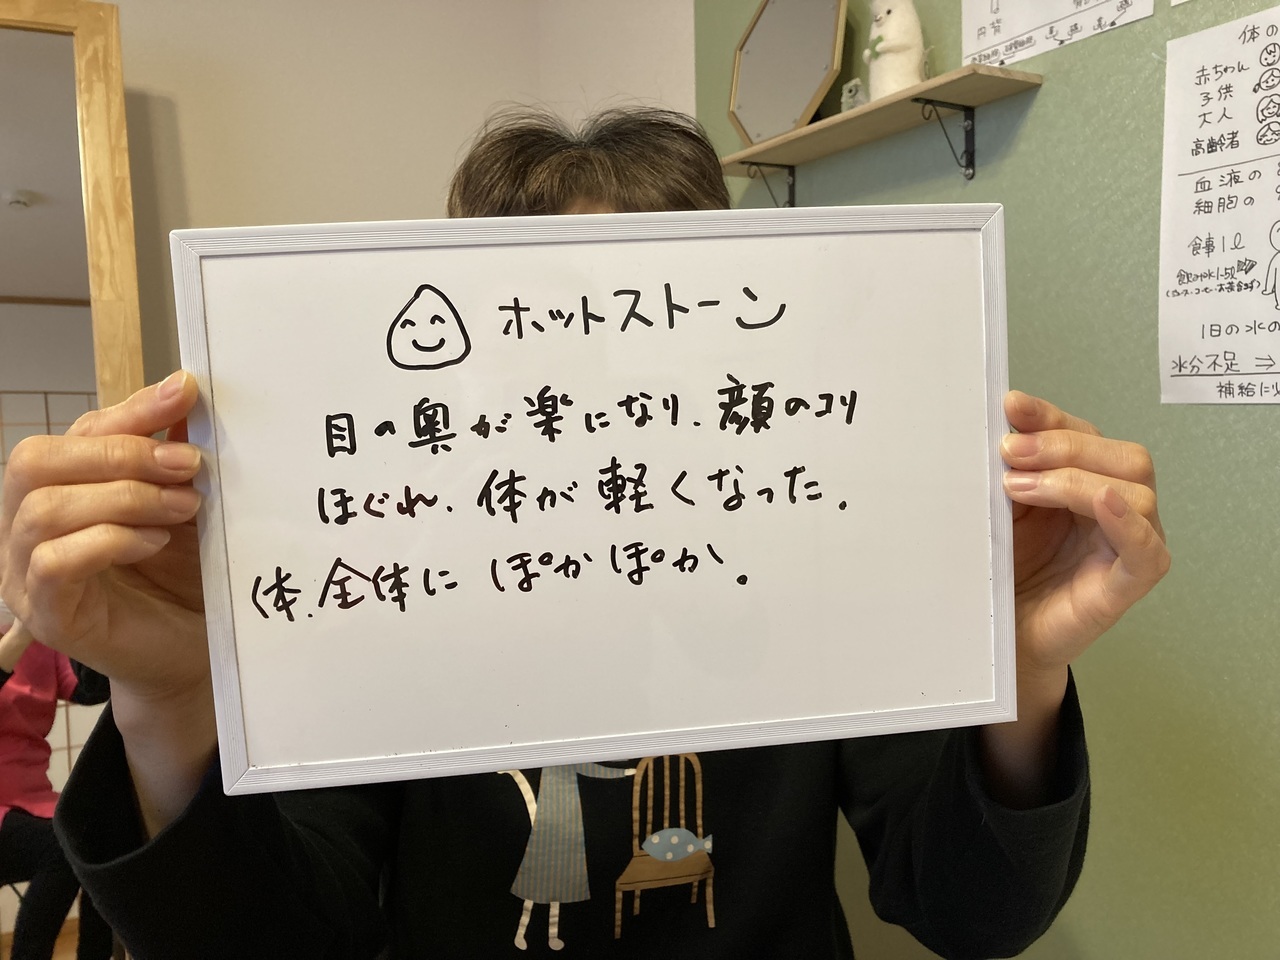 ホットストーン
目の奥が楽になり、顔のコリ
ほぐれ、体が軽くなった。
体、全体に ぽかぽか。
円背
体の
赤ちゃん
子供
大人
高齢者
血液の
細胞の
食事1ℓ
1日の水の
水分不足 ⇒
補給に